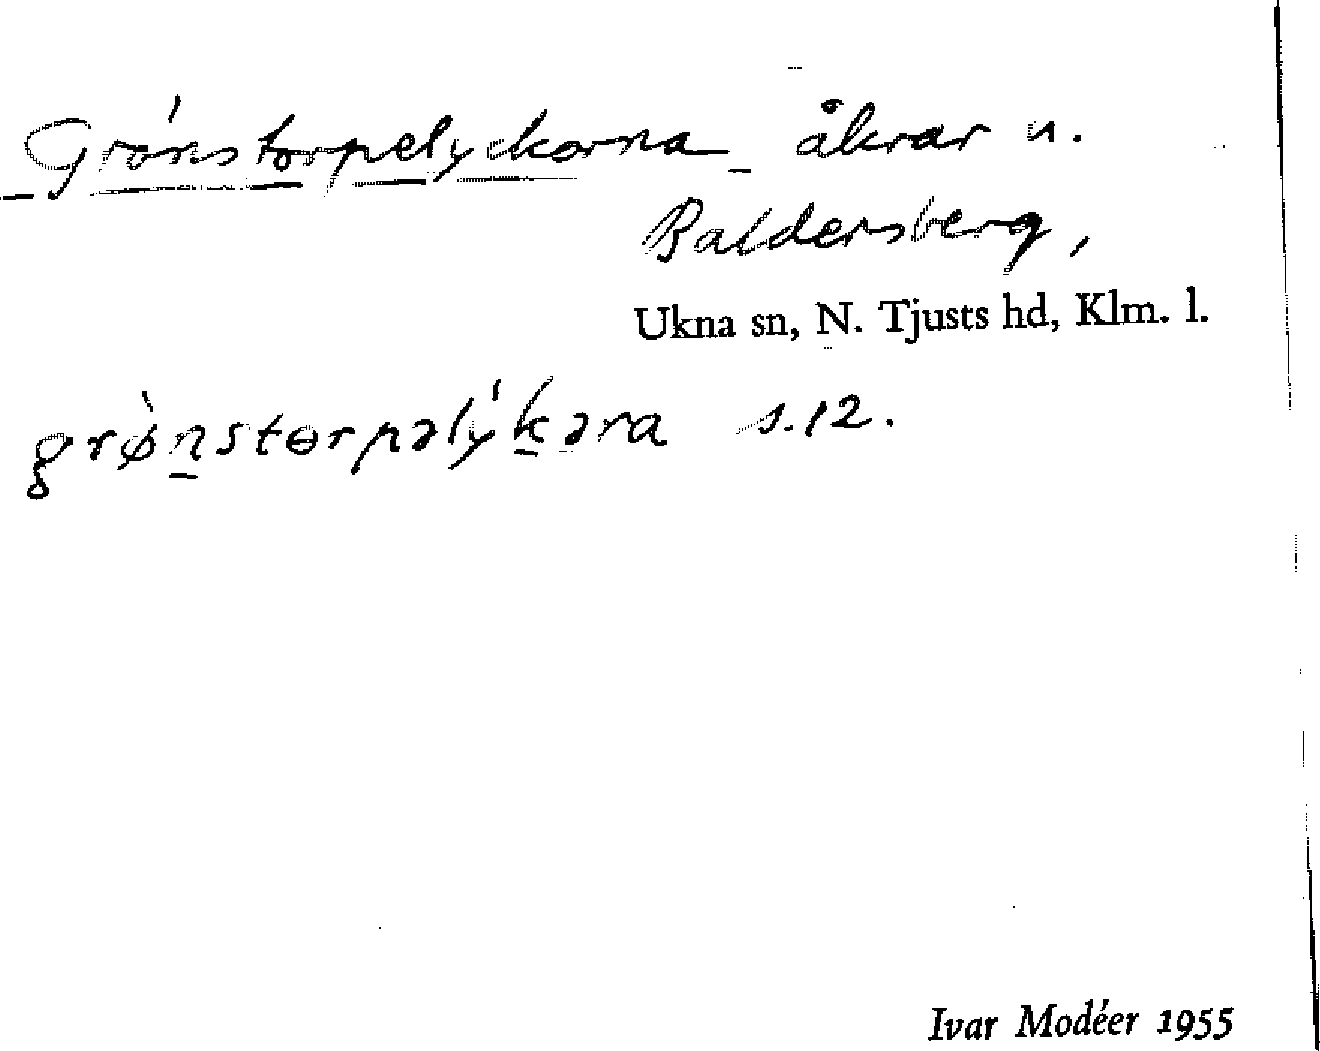 Grönstorpelyckorna åkrar u.
Baldersberg,
Ukna sn, N. Tjusts hd, Klm. l.
grø̀nstɵrpəlýkəra s.12.
Ivar Modéer 1955